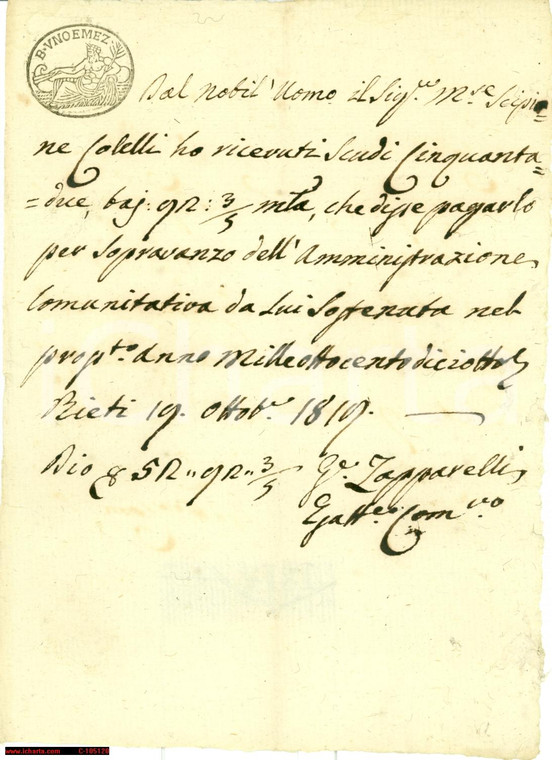 B. VNOEMEZ.
Dal Nobil' Uomo il Sig.re M.se Scipio=
ne Colelli ho ricevuti Scudi Cinquanta=
=due, baj: 92: 3/5 mta, che disse pagarlo
per Sopravanzo dell' Amministrazione
Comunitativa da Lui Sostenuta nel
prop.to Anno Mille ottocento diciotto
Rieti 19. Ottob.e 1819.
Dio 52 " 92 " 3/5 G. Zapparelli
Esatt.e Com.vo
www.icharta.com C-105120